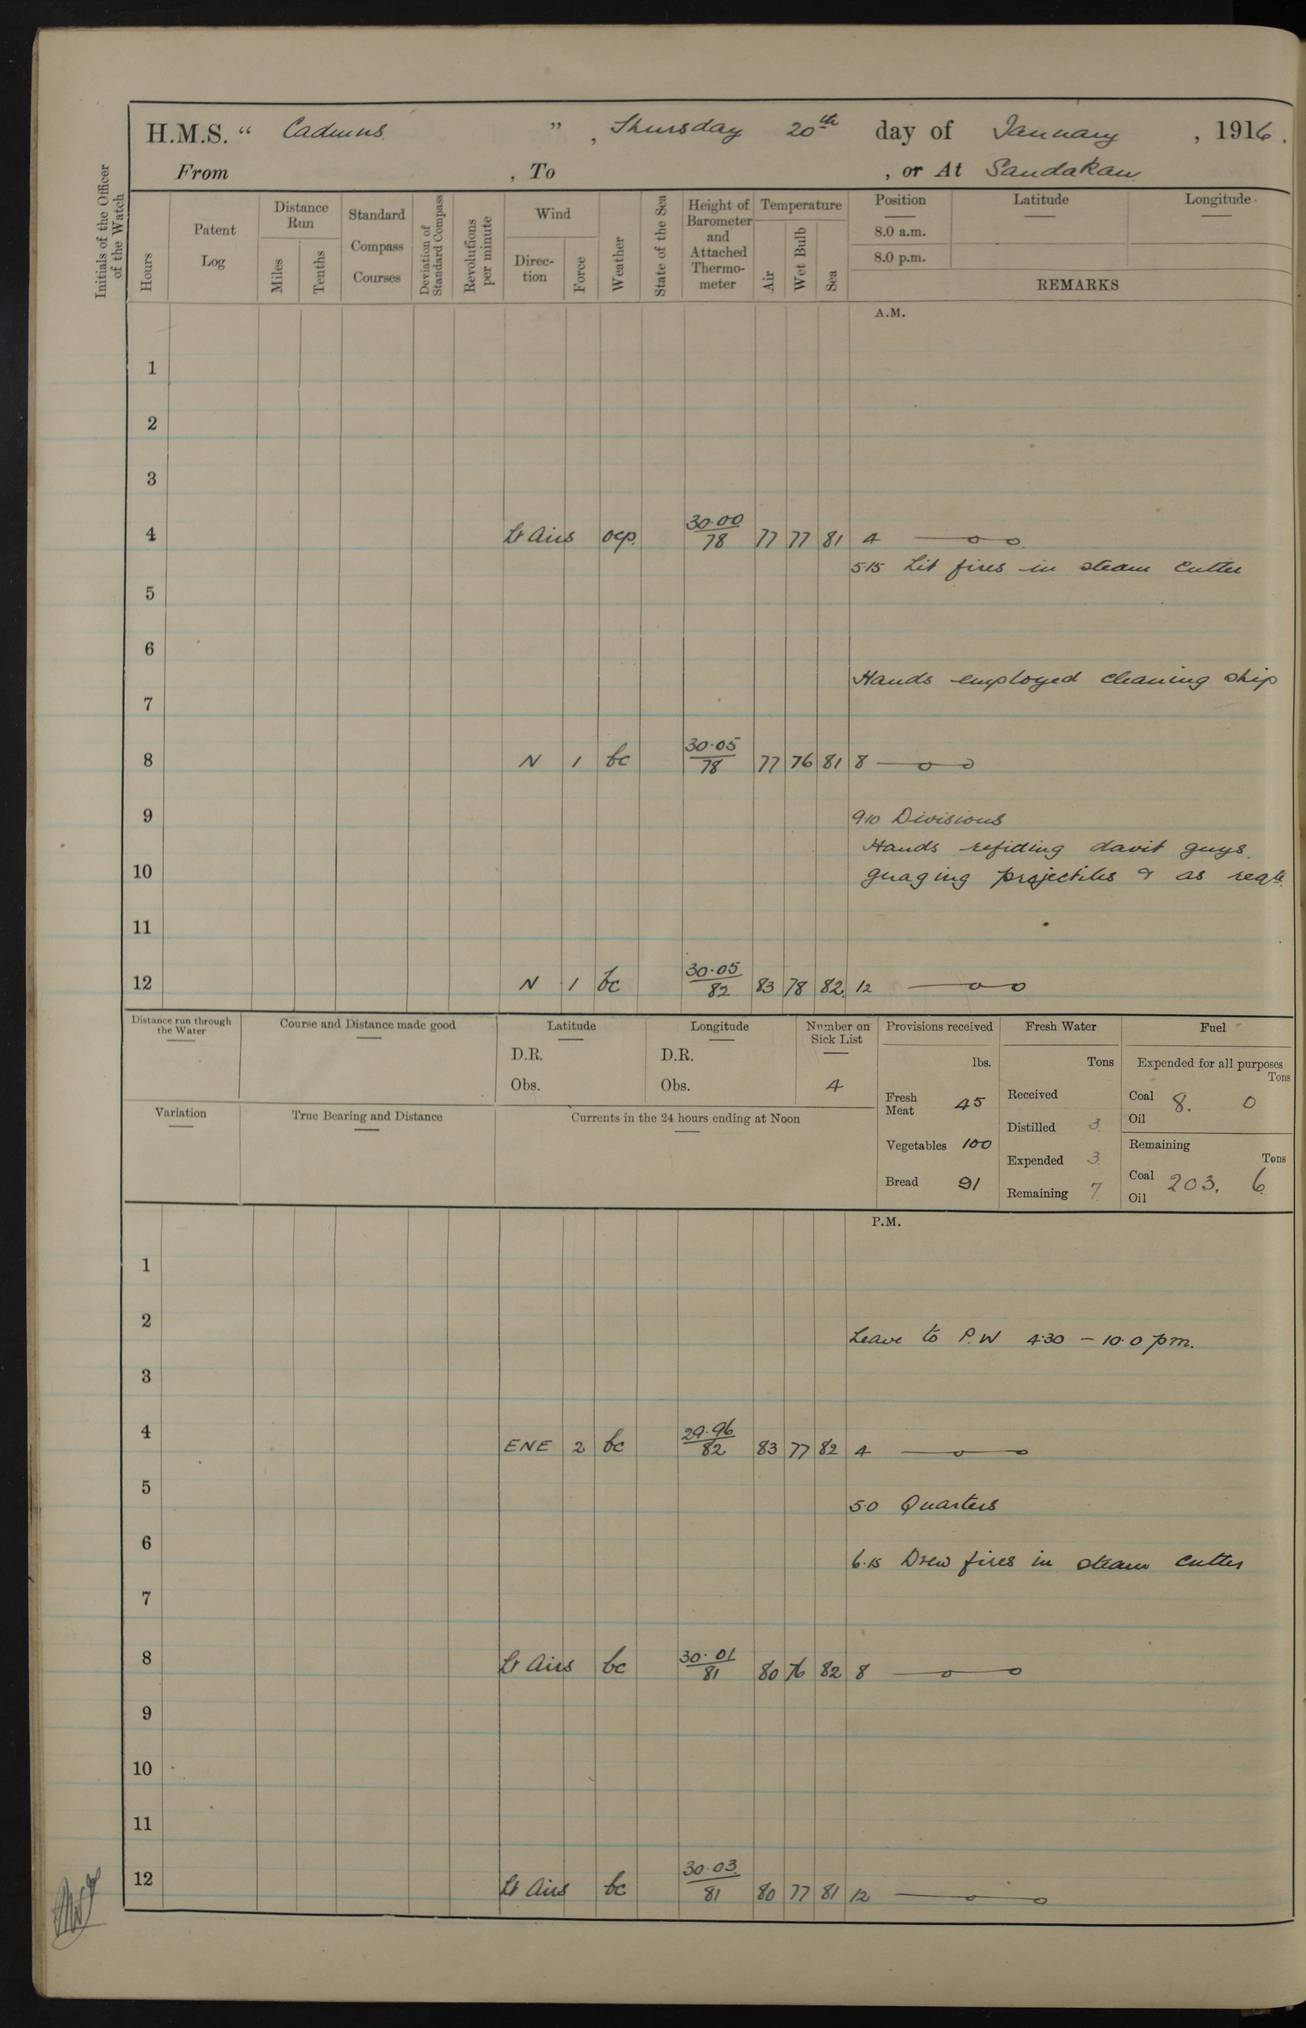 H.M.S. “ Cadmus ” , Thursday 20th day of January , 1916.
From , To , or At Sandakan
Initials of the Officer of the Watch
Hours
Patent Log
Distance Run
Miles
Tenths
Standard Compass Courses
Deviation of Standard Compass
Revolutions per minute
Wind
Direc-tion
Force
Weather
State of the Sea
Height of Barometer and Attached Thermo-meter
Temperature
Air
Wet Bulb
Sea
Position
8.0 a.m.
8.0 p.m.
Latitude
Longitude
REMARKS
A.M.
1
2
3
4 Lt Airs ocp. 30.00/78 77 77 81 4
515 Lit fires in steam cutter
5
6
Hands employed cleaning ship
7
8 N 1 bc 30.05/78 77 76 81 8
9 910 Divisions
Hands refiding davit guys.
10 guaging projectiles & as reqte.
11
12 N 1 bc 30.05/82 83 78 82 12
Distance run through the Water
Course and Distance made good
Latitude
D.R.
Obs.
Longitude
D.R.
Obs.
Number on Sick List
4
Provisions received
lbs.
Fresh Meat 45
Vegetables 100
Bread 91
Fresh Water
Tons
Received
Distilled 3
Expended 3
Remaining 7
Fuel
Expended for all purposes
Tons
Coal 8. 0
Oil
Remaining
Tons
Coal 203. 6
Oil
Variation
True Bearing and Distance
Currents in the 24 hours ending at Noon
P.M.
1
2
Leave to P.W 4.30 – 10.0 pm.
3
4 ENE 2 bc 29.96/82 83 77 82 4
5
50 Quarters
6
6.15 Drew fires in steam cutter
7
8 Lt Airs bc 30.01/81 80 76 82 8
9
10
11
12 Lt Airs bc 30.03/81 80 77 81 12